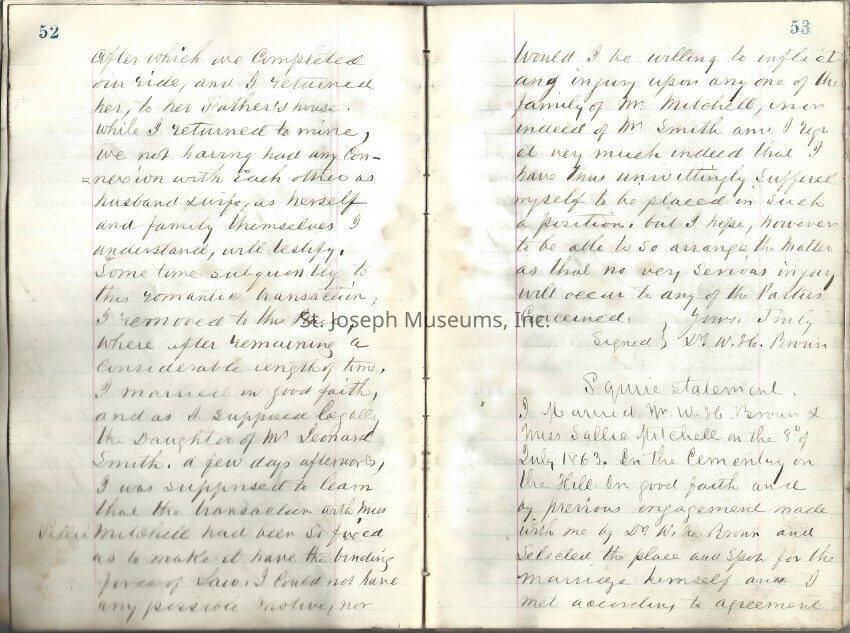 52
After which we Completed
our ride, and I returned
her, to her Father's house.
while I returned to mine,
we not having had any Con-
=nexion with Each other as
husband & wife, as herself
and family themselves I
understand, will testify.
Some time subquently to
this romantic transaction,
I removed to this
Where after remaining a
Considerable length of time,
I married in good faith,
and as I supposed legally
the Daughter of Mr Leonard
Smith. a few days afterwords,
I was supprised to learn
that the transaction with Miss
Sallie Mitchell had been so fixed
as to make it have the binding
force of Law. I Could not have
any possible motive, nor
53
Would I be willing to inflict
any injury upon any one of the
family of Mr Mitchell, nor
indeed of Mr Smith and I regr
et very much indeed that I
have thus unwittingly Suffered
myself to be placed in Such
a position. but I hope, however
to be able to so arrange the matter
as that no very serious injury
will occur to any of the Parties
Concerned. Yours Truly
Signed } Dr. W. H. Brown
Squire Statement.
I Married Dr. W. H. Brown &
Miss Sallie Mitchell on the 8th of
July 1863. In the Cementry on
the Hill. In good faith and
by previous engagement made
with me by Dr W. H. Brown and
Selected the place and spot for the
marriage himself and I
met according to agreement
St. Joseph Museums, Inc.